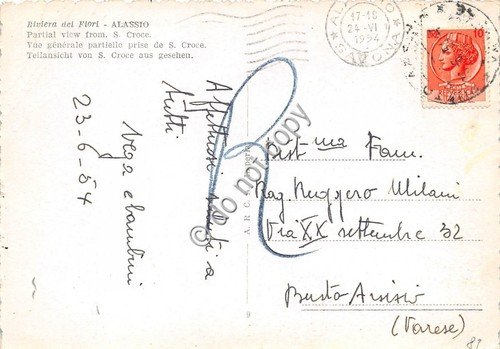 Riviera dei Fiori - ALASSIO
Partial view from. S. Croce.
Vue générale partielle prise de S. Croce.
Teilansicht von S. Croce aus gesehen.
17-18
24-VI
1954
10
Affettuosi saluti a
tutti
Vega e bambini
23-6-54
R
do not copy
A. R. C.
Gist.ma Fam.
Rag. Ruggero Milani
Via XX settembre 32
Busto Arsizio
(Varese)
9
81